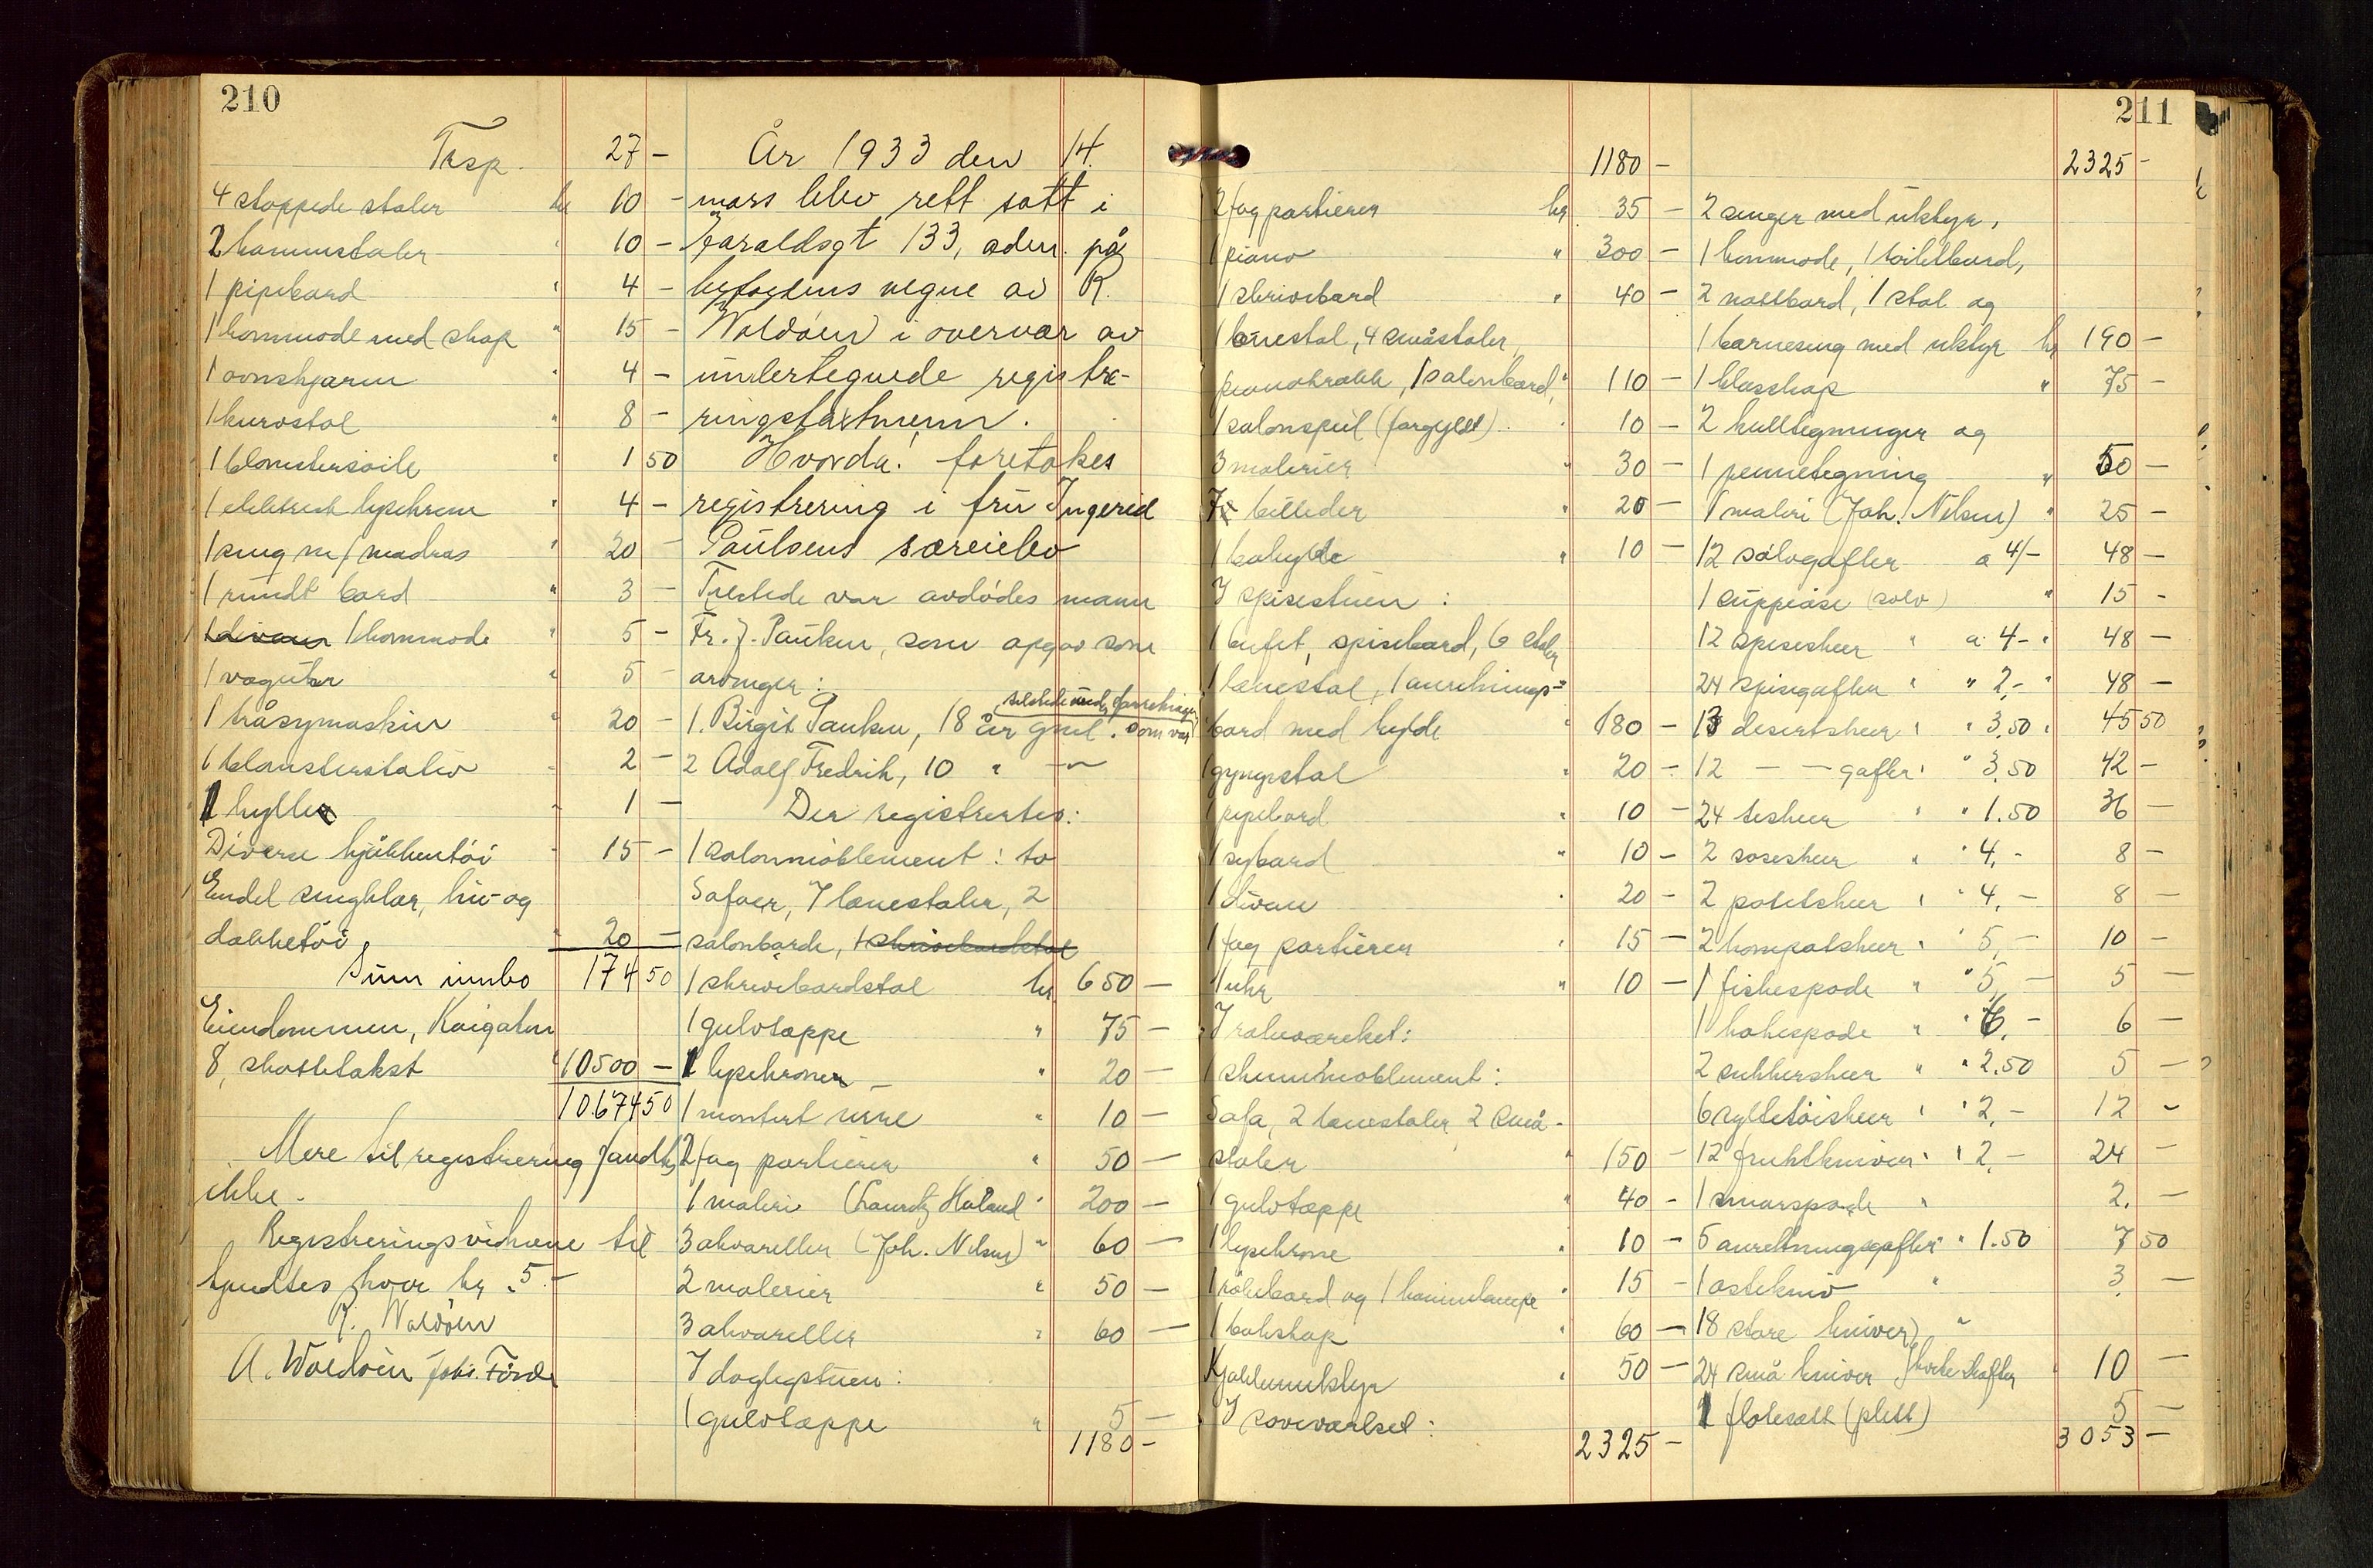 210
Trsp. 27 -
4 stoppede stoler kr 10 -
2 kammstoler " 10 -
1 pipebord " 4 -
1 kommode med skap " 15 -
1 ovnskjerm " 4 -
1 kurvstol " 8 -
1 blomstersøile " 1 50
1 elektrisk lysekrone " 4 -
1 seng m/ madras " 20 -
1 rundt bord " 3 -
1 divan 1 kommode " 5 -
1 vaguter " 5 -
1 tråsymaskin " 20 -
1 blomsterstativ " 2 -
1 hylle " 1 -
Diverse kjøkkentøi " 15 -
Endel sengklær, liv- og
dekketøi " 20 -
Sum innbo 174 50
Eiendommen, Kaigaten
8, skattetakst " 10500 -
10674 50
Mere til registrering fandtes
ikke.
Registreringsvidnene til-
kjendtes hver kr. 5.-
R. Waldøen
A. Waldøen Johs. Förde
År 1933 den 14.
mars blev rett satt i
Haraldsgt 133, adm. på
byfogdens vegne av R.
Waldøen i overvær av
undertegnede registre-
ringstaxtmenn.
Hvorda: foretokes
registrering i fru Ingerid
Paulsens særeiebo
Tilstede var avdødes mann
Fr. J. Paulsen, som opgav som
arvinger:
1. Birgit Paulsen, 18 år gml. som var tilstede ved forretningen
2 Adolf Fredrik, 10 " -"-
Der registrertes:
1 salonmøblement: to
Sofaer, 7 lænestoler, 2
salonborde, 1 skrivebordstol
1 skrivebordstol kr 650 -
1 gulvteppe " 75 -
1 lysekrone " 20 -
1 montert urne " 10 -
2 fag portierer " 50 -
1 maleri (Lauritz Haland " 200 -
3 akvareller (Joh. Nilsen) " 60 -
2 malerier " 50 -
3 akvareller " 60 -
I dagligstuen:
1 gulvteppe " 5 -
1180 -
1180 -
2 fag portierer kr. 35 -
1 piano " 300 -
1 skrivebord " 40 -
1 lænestol, 4 småstoler,
pianokrakk, 1 salonbord, " 110 -
1 salonspeil (forgyldt) " 10 -
3 malerier " 30 -
7 billeder " 20 -
1 bokhylde " 10 -
I spisestuen:
1 buffet, spisebord, 6 stoler
1 lænestol, 1 anretnings-
bord med hylde " 180 -
1 gyngestol " 20 -
1 pipebord " 10 -
1 sybord " 10 -
1 divan " 20 -
1 fag portierer " 15 -
1 uhr " 10 -
I røkeværelset:
1 skinnmøblement:
Sofa, 2 lænestoler 2 små-
stoler " 150 -
1 gulvteppe " 40 -
1 lysekrone " 10 -
1 røkebord og 1 kaminlampe " 15 -
1 bokskap " 60 -
Kjøkkenutstyr " 50 -
I soveværelset:
2325 -
211
2325 -
2 senger med utstyr,
1 kommode, 1 toilettbord,
2 nattbord, 1 stol og
1 barneseng med utstyr kr 190 -
1 klesskap " 75 -
2 kulltegninger og
1 pennetegning " 50 -
1 maleri (Joh. Nilsen) " 25 -
12 sølvgafler a 4/- 48 -
1 suppeøse (sølv) " 15 -
12 spiseskeer " a 4- " 48 -
24 spisegafler " " 2,- " 48 -
13 desertskeer " " 3,50 " 45 50
12 - - gafler " " 3,50 42 -
24 teskeer " " 1.50 36 -
2 sauseskeer " " 4,- 8 -
2 potetskeer " " 4,- 8 -
2 kompotskeer " " 5,- 10 -
1 fiskespade " " 5,- 5 -
1 kakespade " " 6,- 6 -
2 sukkerskeer " " 2.50 5 -
6 syltetøiskeer " " 2,- 12 -
12 fruktkniver " " 2,- 24 -
1 smørspade " 2. -
5 anretningsgafler " " 1.50 7 50
1 ostekniv " 3 -
18 store kniver) "
24 små kniver ) hvite skafter " 10 -
1 fløtesett (plett) 5 -
3053 -